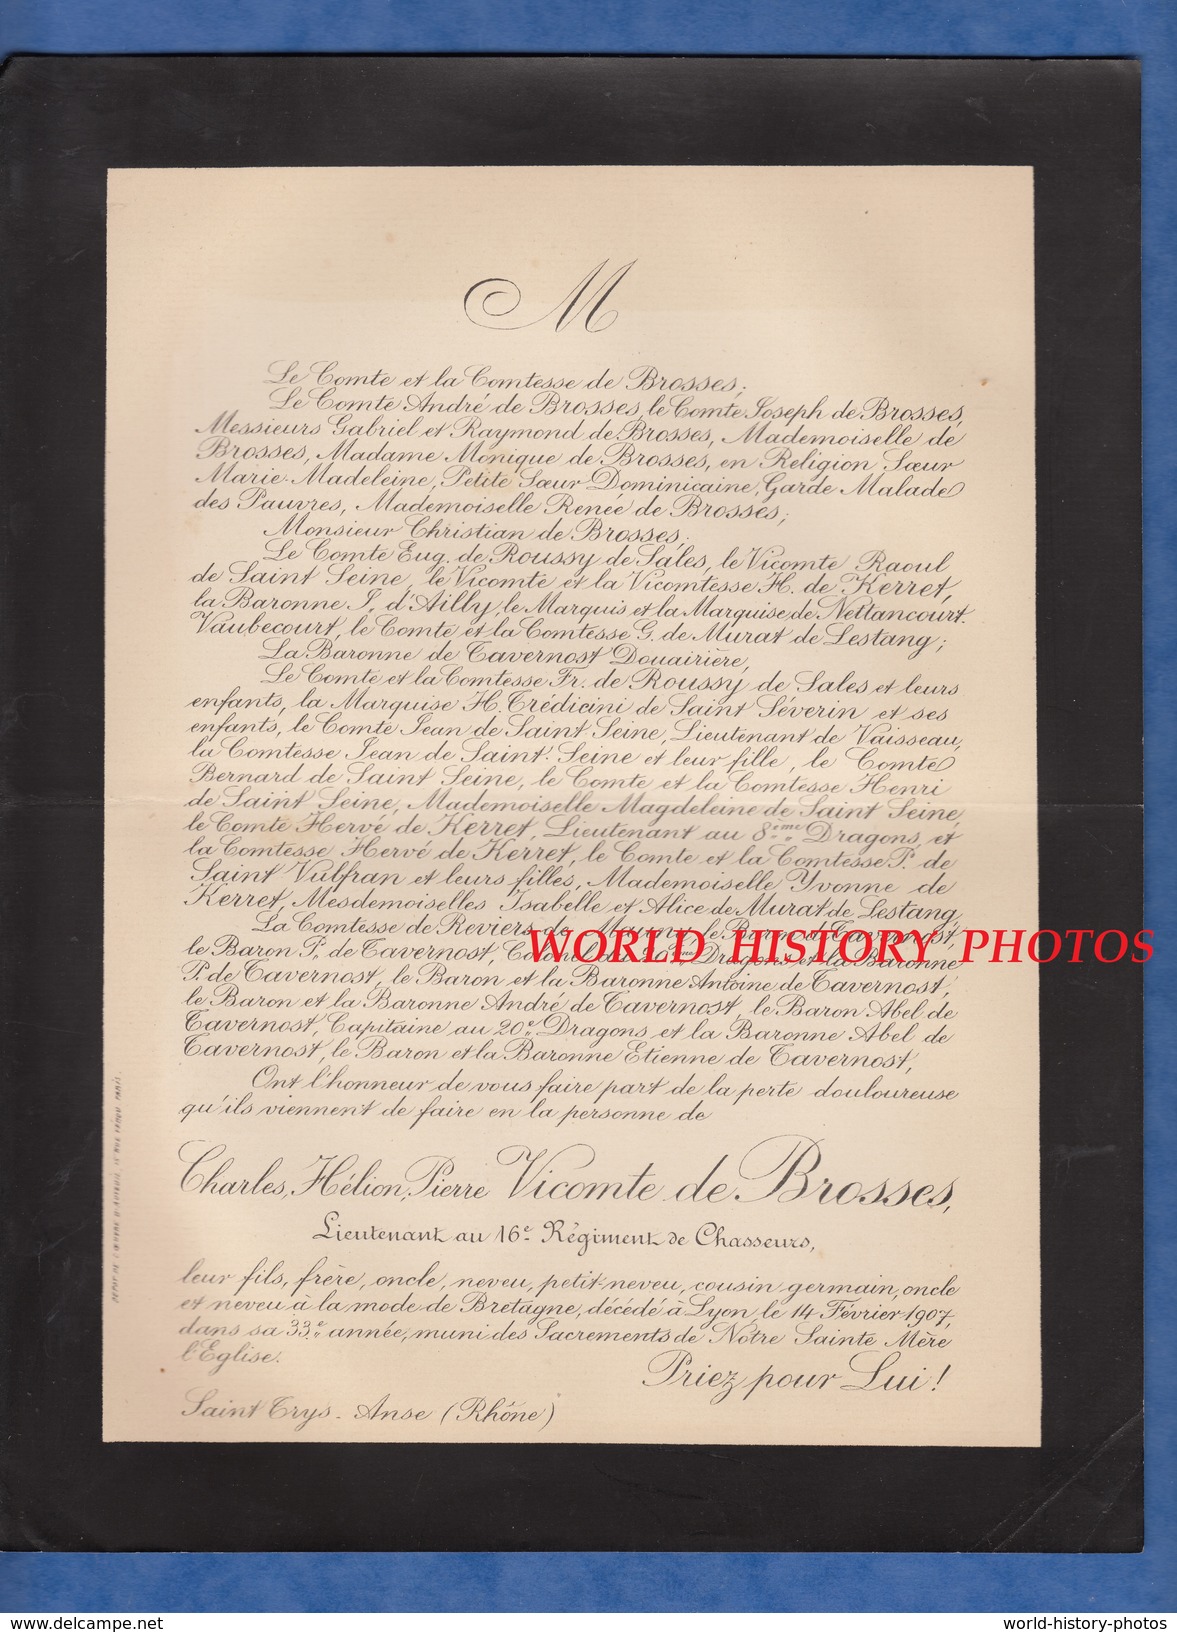 M
Le Comte et la Comtesse de Brosses;
Le Comte André de Brosses, le Comte Joseph de Brosses,
Messieurs Gabriel et Raymond de Brosses, Mademoiselle de
Brosses, Madame Monique de Brosses, en Religion Sœur
Marie-Madeleine, Petite Sœur Dominicaine, Garde Malade
des Pauvres, Mademoiselle Renée de Brosses;
Monsieur Christian de Brosses;
Le Comte Eug. de Roussy de Sales, le Vicomte Raoul
de Saint Seine, le Vicomte et la Vicomtesse H. de Kerret,
la Baronne J. d'Ailly, le Marquis et la Marquise de Nettancourt-
Vaubecourt, le Comte et la Comtesse G. de Murat de Lestang;
La Baronne de Tavernost Douairière,
Le Comte et la Comtesse Fr. de Roussy de Sales et leurs
enfants, la Marquise H. Trédicini de Saint Séverin et ses
enfants, le Comte Jean de Saint Seine, Lieutenant de Vaisseau,
la Comtesse Jean de Saint Seine et leur fille, le Comte
Bernard de Saint Seine, le Comte et la Comtesse Henri
de Saint Seine, Mademoiselle Magdeleine de Saint Seine,
le Comte Hervé de Kerret, Lieutenant au 8ème Dragons, et
la Comtesse Hervé de Kerret, le Comte et la Comtesse P. de
Saint Vulfran et leurs filles, Mademoiselle Yvonne de
Kerret, Mesdemoiselles Isabelle et Alice de Murat de Lestang,
La Comtesse de Reviers de Mauny, le Baron de Tavernost,
le Baron P. de Tavernost, Colonel du Dragons et la Baronne
P. de Tavernost, le Baron et la Baronne Antoine de Tavernost,
le Baron et la Baronne André de Tavernost, le Baron Abel de
Tavernost, Capitaine au 20e Dragons et la Baronne Abel de
Tavernost, le Baron et la Baronne Etienne de Tavernost,
Ont l'honneur de vous faire part de la perte douloureuse
qu'ils viennent de faire en la personne de
Charles, Hélion, Pierre Vicomte de Brosses,
Lieutenant au 16e Régiment de Chasseurs,
leur fils, frère, oncle, neveu, petit-neveu, cousin germain, oncle
et neveu à la mode de Bretagne, décédé à Lyon, le 14 Février 1907,
dans sa 33e année, muni des Sacrements de Notre Sainte Mère
l'Eglise.
Priez pour Lui!
Saint Trys - Anse (Rhône)
WORLD HISTORY PHOTOS
delcampe.net
world-history-photos